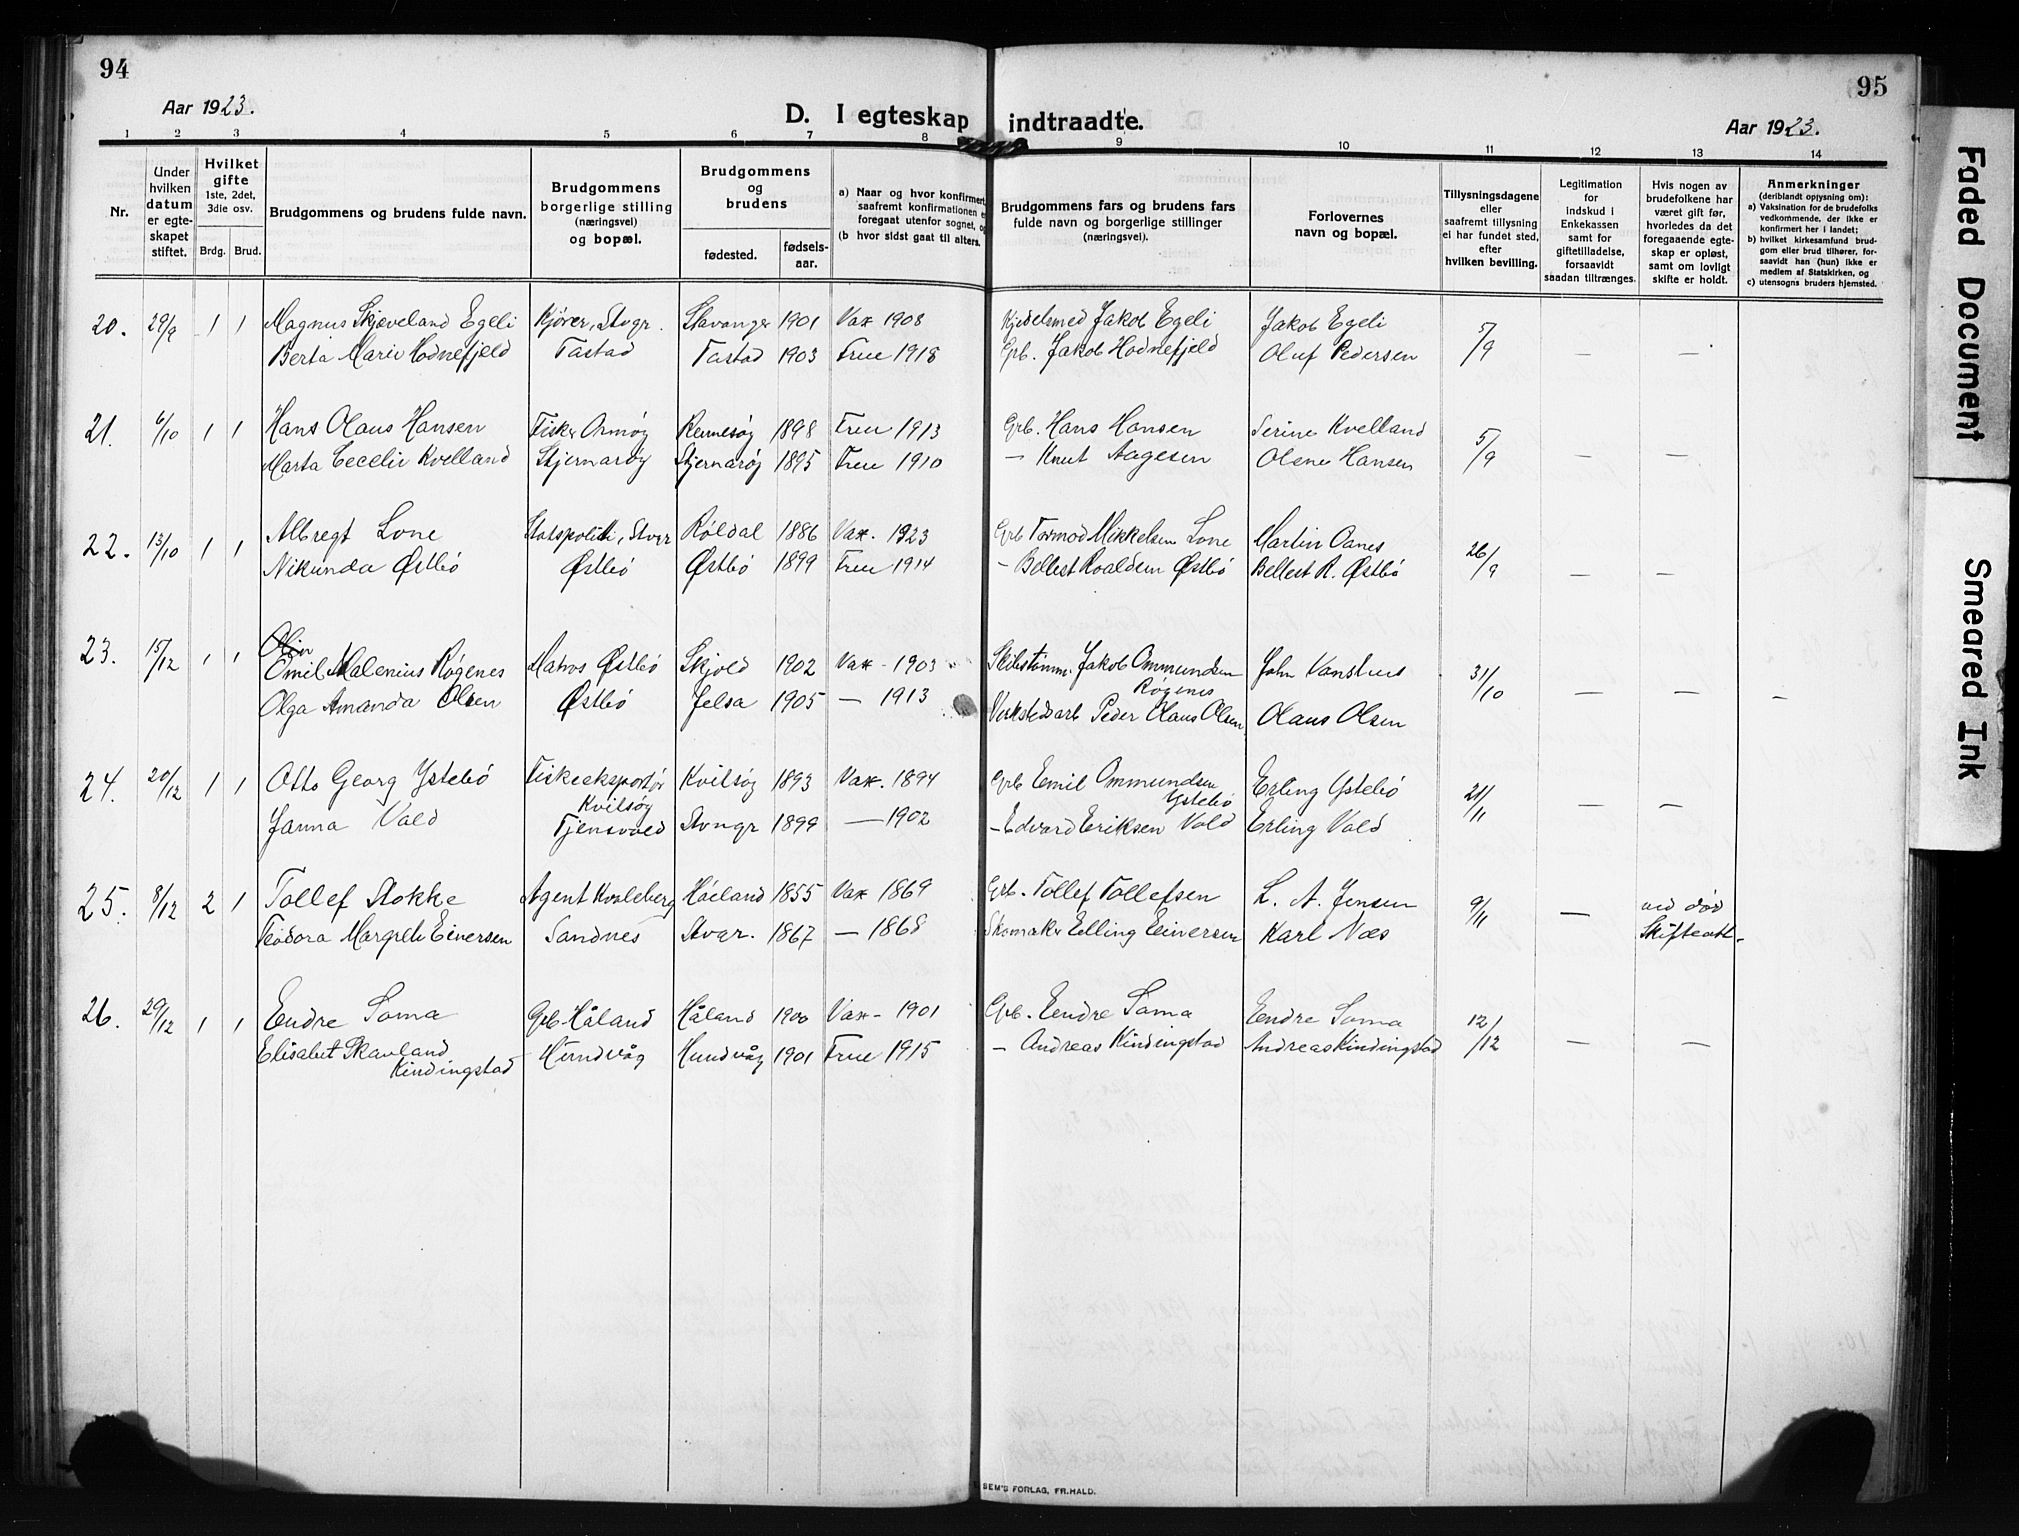 94
95
Aar 1923.
D. I egteskap indtraadte.
Aar 1923.
1 2 3 4 5 6 7 8 9 10 11 12 13 14
Nr.
Under hvilken datum er egteskapet stiftet.
Hvilket gifte 1ste, 2det, 3die osv.
Brdg. Brud.
Brudgommens og brudens fulde navn.
Brudgommens borgerlige stilling (næringsvei) og bopæl.
Brudgommens og brudens
fødested.
fødsels-aar.
a) Naar og hvor konfirmert,
saafremt konfirmationen
foregaat utenfor sognet,
(b hvor sidst gaat til alters.
Brudgommens fars og brudens fars fulde navn og borgerlige stillinger (næringsvei).
Forlovernes navn og bopæl.
Tillysningsdagene eller saafremt tillysning ei har fundet sted, efter hvilken bevilling.
Legitimation for indskud i Enkekassen samt for giftetilladelse, forsaavidt saadan tiltrænges.
Hvis nogen av brudefolkene har været gift før, hvorledes da det foregaaende egteskap er opløst, samt om lovligt skifte er holdt.
Anmerkninger (deriblandt opjysning om):
a) Vaksination for de brudefolks vedkommende, der ikke er konfirmert her i landet;
b) hvilket kirkesamfund brudgom eller brud tilhører, forsaavidt han (hun) ikke er medlem af Statskirken, og
c) utensogns bruders hjemsted.
20. 29/9 1 1 Magnus Skjæveland Egeli Kjører, Stvgr. Stavanger 1901 Vax 1908 Kjedelsmed Jakob Egeli Jakob Egeli 5/9
Berta Marie Hodnefjeld Tastad Tastad 1903 Frue 1918 Grb. Jakob Hodnefjeld Oluf Pedersen — —
21. 6/10 1 1 Hans Olaus Hansen Fisker Ormøy Rennesøy 1898 Frue 1913 Grb. Hans Hansen Serine Kvelland 5/9
Marta Cecelie Kvelland Stjernarøy Stjernarøy 1895 Frue 1910 — Knut Aagesen Olene Hansen — —
22. 13/10 1 1 Albregt Lone Statspoliti, Stvgr Røldal 1886 Vax. 1923 Grb Tormod Mikkelsen Lone Martin Oanes 26/9
Nikunda Østbø Østbø Østbø 1899 Frue 1914 — Bellest Roaldsen Østbø Bellest R. Østbø — —
23. 15/12 1 1 Emil Malenius Røgenes Matros Østbø Skjold 1902 Vax — 1903 Skibstømm. Jakob Ommundsen Røgenes John Vanshus 31/10
Olga Amanda Olsen Østbø Jelsa 1905 — 1913 Verkstedsarb Peder Olaus Olsen. Olaus Olsen — — —
24. 20/12 1 1 Otto Georg Ystebø Fiskeeksportør Kvitsøy Kvitsøy 1893 Vax. 1894 Grb Emil Ommundsen Ystebø Erling Ystebø 21/11
Janna Vold Tjensvold Stvngr 1899 — 1902 — Edvard Eriksen Vold Erling Vold — —
25. 8/12 2 1 Tollef Stokke Agent Kvaleberg Høiland 1855 Vax 1869 Grb. Tollef Tollefsen L. A. Jensen 9/11 — ved død
Teodora Margrete Einersen Sandnes Stvgr. 1867 — 1868 Skomaker Elling Einersen Karl Næs Skifteatt.
26. 29/12 1 1 Endre Soma Grb. Håland Håland 1900 Vax — 1901 Grb. Endre Soma Endre Soma 12/12
Elisabet Skavland Kindingstad Hundvåg Hundvåg 1901 Frue 1915 — Andreas Kindingstad Andreas Kindingstad — —
SEM'S FORLAG, FR.HALD.
Faded Document
Smeared Ink